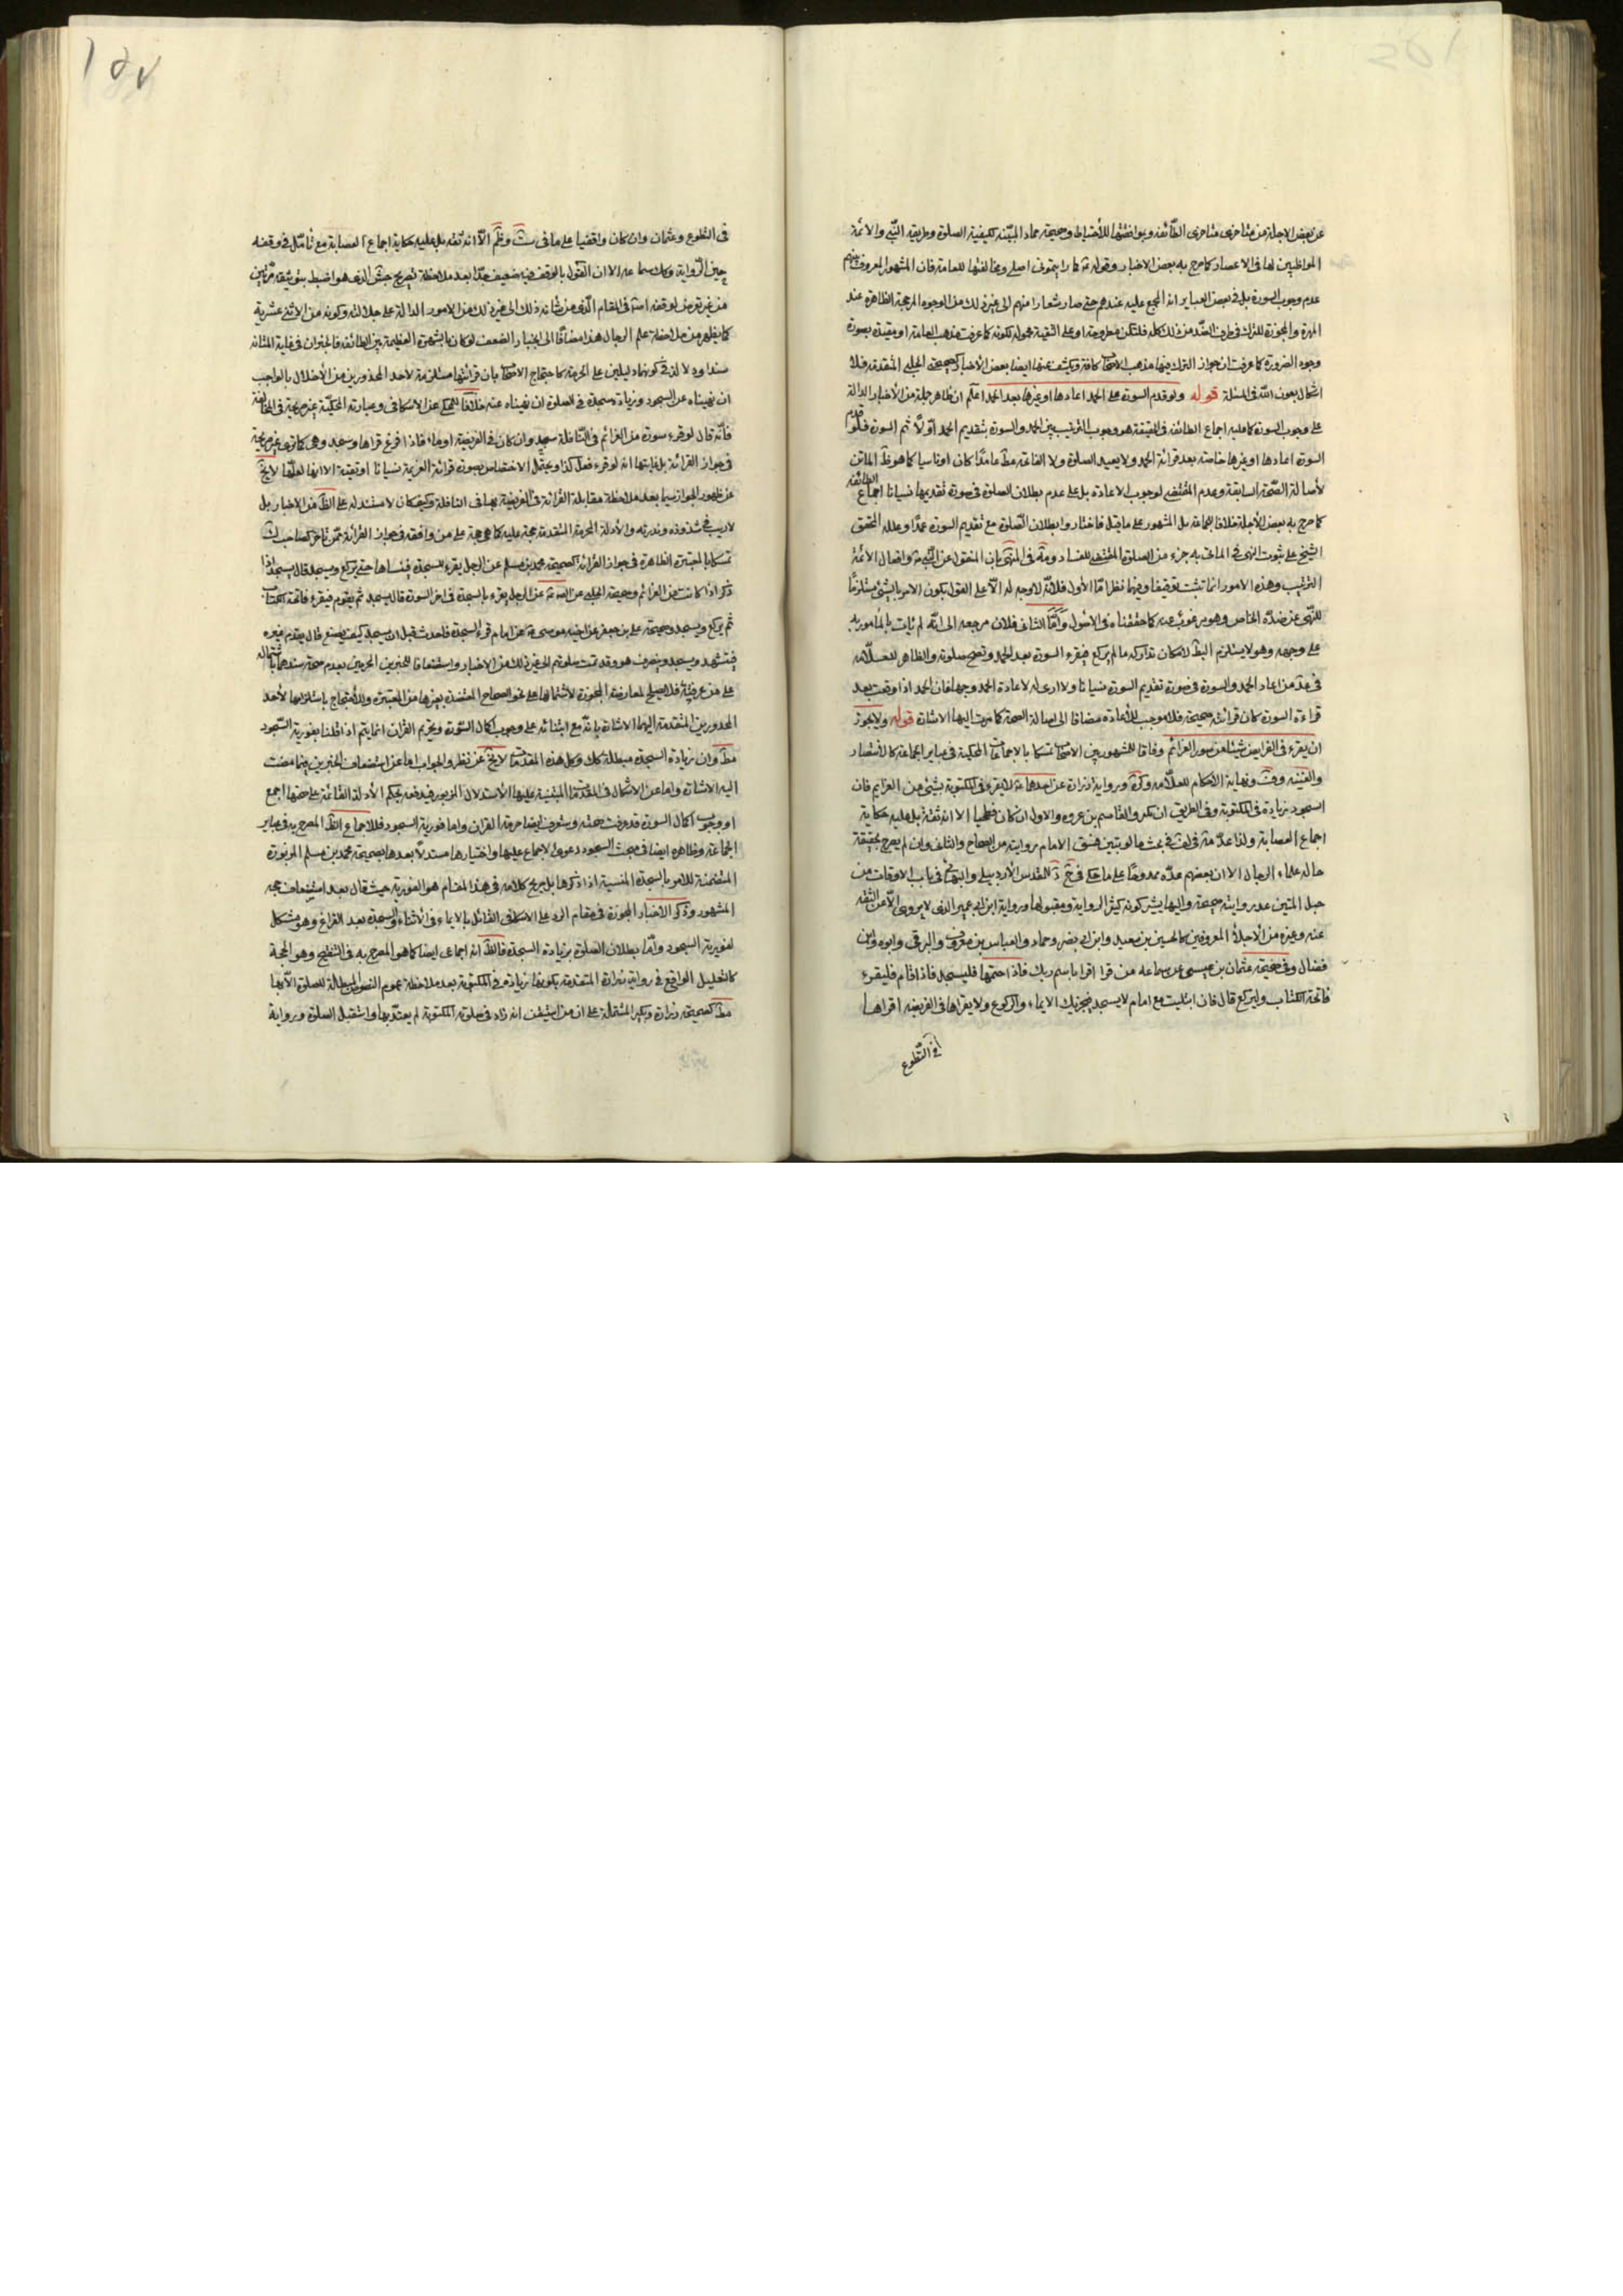 عن بعض الاجلة من متاخرى متاخرى الطائفة وبوافقتها للأحتياط وصحيحة حماد المبينة لكيفية الصلوة وطريقة النبى والائمة
المواظبين لها فى الاعصار كما صرح به بعض الاخبار وقوله كما رايتمونى اصلى ومخالفتها للعامة فان المشهور المعروف بينهم
عدم وجوب السورة بل فى بعض العبایر انه المجمع عليه عندهم حتى صار شعارا منهم الى غير ذلك من الوجوه المرجحة الظاهرة عند
المهرة والمجوزة للترك فى طرف الضد من ذلك كله فلتكن مطروحة او على التقية محمولة لكونه كما عرفت مذهب العامة او مقيدة بصورة
وجوه الضرورة كما عرفت ان جواز الترك فيها مذهب الاصحاب كافة ويكشف عنها ايضا بعض الأخبار كصحيحة الحلبى المتقدمة فلا
اشكال بعون الله فى المسئلة قوله ولو قدم السورة على الحمد اعادها او غيرها بعد الحمد اعلم ان ظاهر جملة من الأخبار الدالة
على وجوب السورة كما عليه اجماع الطائفة فى الحقيقة هو وجوب الترتيب بين الحمد والسورة بتقديم الحمد اولا ثم السورة فلو قدم
السورة اعادها او غيرها خاصة بعد قرائة الحمد ولا يعيد الصلوة ولا الفاتحة مط عامدا كان او ناسيا كما هو ظ الماتن
لأصالة الصحة السابقة وعدم المقتضى لوجوب الاعادة بل على عدم بطلان الصلوة فى صورة تقديمها نسيانا اجماع الطائفة
كما صرح به بعض الأجلة خلافا لجماعة بل المشهور على ما قيل فاختاروا بطلان الصلوة مع تقديم السورة عمدا وعلله المحقق
الشيخ على بثوت النهى فى المأتى به جزء من الصلوة المقتضى للفساد ومة فى المنتهى بان المنقول عن النبى ص وافعال الأئمة
الترتيب وهذه الامور انما تثبت توقيفا وفيهما نظر امّا الأول فلأنه لا وجه له الا على القول بكون الامر بالشئ مستلزما
للنهى عن ضده الخاص وهو مرغوب عنه كما حققناه فى الأصول وأمّا الثانى فلان مرجعه الى انه لم يأت بالمأمور به
على وجهه وهو لا يستلزم البط لامكان تداركه ما لم يركع فيقرء السورة بعد الحمد وتصح صلوته والظاهر للعلّامه
فى عد من اعاد الحمد والسورة فى صورة تقديم السورة نسيانا ولا ارى له لاعادة الحمد وجها فان الحمد اذا وقعت بعد
قراءة السورة كان قرائته صحيحة فلا موجب للأعادة مضافا الى اصالة الصحة كما مرت اليها الاشارة قوله ولا يجوز
ان يقرء فى الفرايض شيئا من سور العزائم وفاقا للمشهور بين الاصحاب تمسكا بالاجماعات المحكية فى عباير الجماعة كالأنتصار
والغنية وف ونهاية الأحكام للعلّامه وكره ورواية زرارة عن احدهما لا يقرء فى المكتوبة بشئ من العزايم فان
السجود زيادة فى المكتوبة وفى الطريق ابن بكير والقاسم بن عروه والاول ان كان فطحيا الا انه ثقة بل عليه حكاية
اجماع العصابة ولذا عد مة فى لف فى بحث
حاله علماء الرجال الا ان بعضهم عدّه ممدوحًا على ما حكى المقدس الأردبيلى والبهائى فى باب الاوقات من
حبل المتين عد روايته صحيحة واليها يشير كونه كثير الرواية ومقبولها ورواية ابن ابى عمير الذى لا يروى الّا عن الثقة
عنه وغيره من الأجلاء المعروفين كالحسين بن سعيد وابن ابى نصر وحماد والعباس بن معروف والبرقى وابوه وابن
فضال وفى صحيحة عثمان بن عيسى عن سماعة من قرا اقرا باسم ربك فاذا ختمها فليسجد فاذا قام فليقرء
فاتحة الكتاب وليركع قال فان ابتليت مع امام لا يسجد فيجزيك الايماء والركوع ولا يقراها فى الفريضة اقراها
فى التطوع
١٥٧
فى التطوع وعثمان وان كان واقفيا على ما فى ست وظم الّا انه ثقة بل عليه حكاية اجماع العصابة مع تأمّل فى وقفه
حين الرواية وكك سماعه الا ان القول بالوقف فيه ضعيف جدا بعد ملاحظة تصريح جش الذى هو اضبط بتوثيقه مرتين
من غير تعرض لوقفه اصلا فى المقام الذى من شأنه ذلك الى غير ذلك من الامور الدالة على جلالته وكونه من الاثنى عشرية
كما يظهر من ملاحظة علم الرجال هذا مضافا الى انجبار الضعف لو كان بالشهرة العظيمة بين الطائفة فالخبران فى غاية المتانة
سندا ودلالة فى كونهما دليلين على الحرمة كاحتجاج الاصحاب بان قرائتها مستلزمة لاحد المحذورين من الأخلال بالواجب
ان نهيناه عن السجود وزيادة سجدة فى الصلوة ان نهيناه عنه خلافا للمحكى عن الاسكافى وعبارته المحكيّة غير صريحة فى المخالفة
فأنّه قال لو قرء سورة من العزائم فى النّافلة سجد وان كان فى الفريضة اومأ فاذا فرغ قراها وسجد وهى كما ترى غير صريحة
فى جواز القرائة بل غايتها انه لو قرء فعل كذا ويحتمل الاختصاص بصورة قرائة العزيمة نسيانا او تقية الا ايها لعلّها لا يخ
عن ظهور الجواز سيما بعد ملاحظة مقابلة القرائة فى الفريضة بها فى النافلة وكيف كان لا مستند له على الظ من الاخبار بل
لا ريب فى شذوذه وندرته والأدلة المحرمة المتقدمة حجة عليه كما هى حجة على من وافقه فى جواز القرائة ممّن تأخر كصاحب لك
تمسكا بالمعتبرة الظاهرة فى جواز القرائة كصحيحة محمد بن مسلم عن الرجل يقرء السجدة فينساها حتى يركع ويسجد قال يسجد اذا
ذكر اذا كانت من العزائم وصحيحة الحلبى عن الرجل يقرء بالسجدة فى اخر السورة قال يسجد ثم يقوم فيقرء فاتحة الكتاب
ثم يركع ويسجد وصحيحة على بن جعفر عن اخيه موسى عن امام قرء السجدة فاحدث قبل ان يسجد كيف يصنع قال يقدم غيره
فيتشهد ويسجد وينصرف هو وقد تمت صلوتهم الى غير ذلك من الاخبار واستضعافا للخبرين المحرمين بعدم صحة سندهما باشتماله
على من عرفته فلا يصلح لمعارضة المجوزة لأشتمالها على نحو الصحاح المعتضدة بغيرها من المعتبرة وللأحتجاج باستلزامها لأحد
المحذورين المتقدمة اليهما الاشارة بانه مع ابتنائه على وجوب اكمال السّورة وتحريم القران انما يتم اذا قلنا بفورية السّجود
مط وان زيادة السجدة مبطلة كك وكل هذه المقدمات لا يخ عن نظر والجواب اما عن استضعاف الخبرين فيما مضت
اليه الاشارة واما عن الاشكال فى المقدمات المبتنية عليها الأستدلال المزبور فيدفعه بحكم الأدلة القائمة على صحتها اجمع
او وجوب اكمال السورة قد عرفت صحته وستعرف ايضا حرمة القران واما فورية السجود فللاجماع الظ المصرح به فى عباير
الجماعة وظاهره ايضا فى مبحث السجود دعوى الاجماع عليها واختيارها مستدلّا بعدها بصحيحة محمد بن مسلم المزبورة
المتضمنة للامر بالسجدة المنسية اذا ذكرها بل صريح كلامه فى هذا المقام هو الفورية حيث قال بعد استضعاف حجة
المشهور وذكر الاخبار المجوزة فى مقام الرد على الاسكافى القائل بالايماء فى الأثناء والسجدة بعد الفراغ وهو مشكل
لفورية السجود وأمّا بطلان الصلوة بزيادة السجدة فالظ انه اجماعى ايضا كما هو المصرح به فى التنقيح وهو الحجة
كالتعليل الواقع فى رواية زرارة المتقدمة بكونها زيادة فى المكتوبة بعد ملاحظة عموم النصوص المبطلة للصلوة الّا بها
مط كصحيحة زرارة وبكير المشتملة على ان من استيقن انه زاد فى صلوته المكتوبة لم يعتدّ بها واستقبل الصلوة ورواية